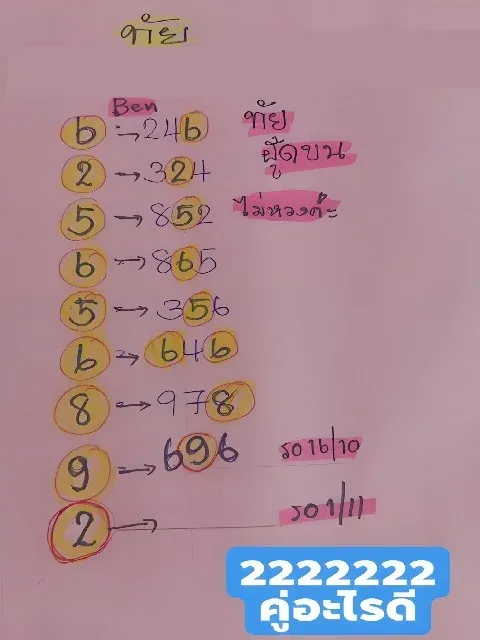 ทัย
Ben
6 → 246 ทัย
2 → 324 ฝืดบน
5 → 852 ไม่หวงค่ะ
6 → 865
5 → 356
6 → 646
8 → 978
9 → 696 รอ 16/10
2 → รอ 1/11
2222222
คู่อะไรดี